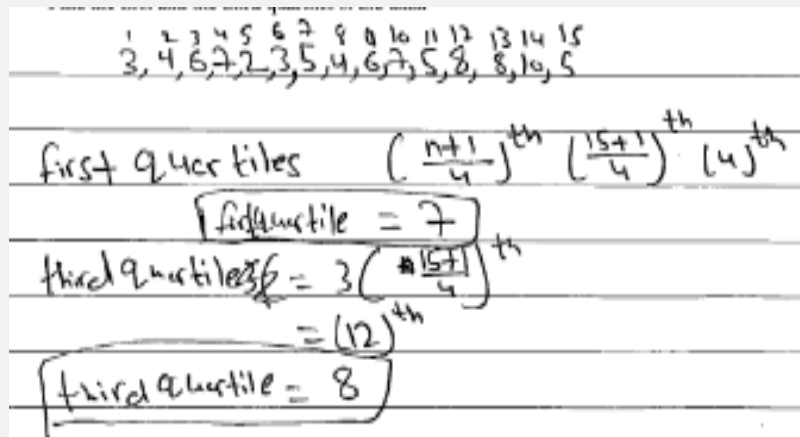 1 2 3 4 5 6 7 8 9 10 11 12 13 14 15
3, 4, 6, 7, 2, 3, 5, 4, 6, 7, 5, 8, 8, 10, 5
first quartiles (n+1/4)th (15+1/4)th (4)th
quartile = 7
third quartiles = 3(15+1/4)th
= (12)th
third quartile = 8